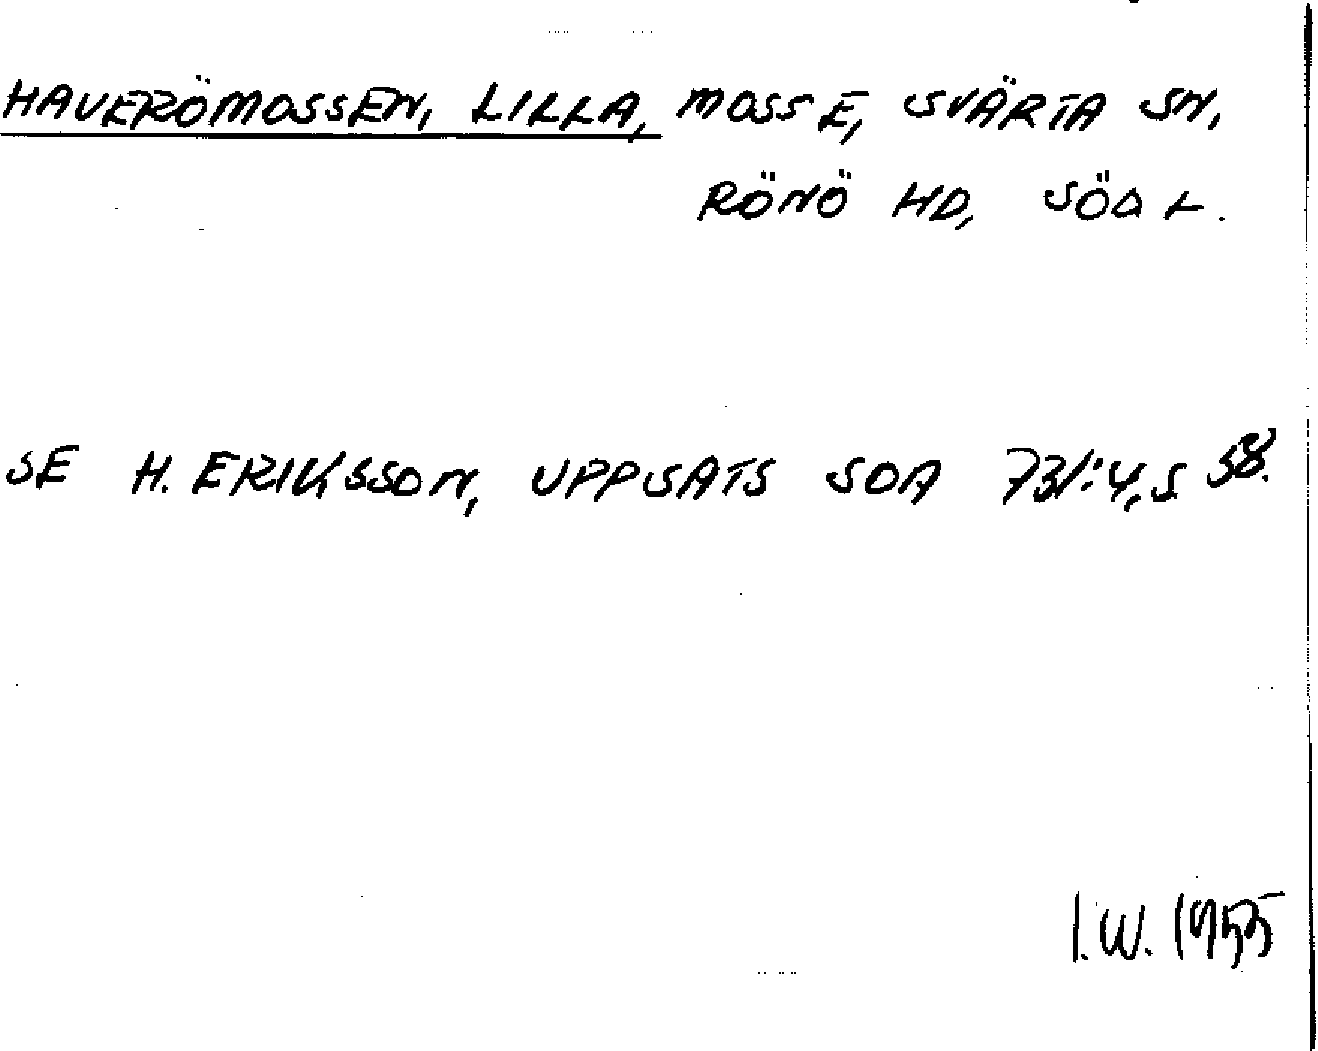 HAVERÖMOSSEN, LILLA, MOSSE, SVÄRTA SN,
RÖNÖ HD, SÖD L.
SE H. ERIKSSON, UPPSATS SOA 731:4, S 58.
I.W. 1955